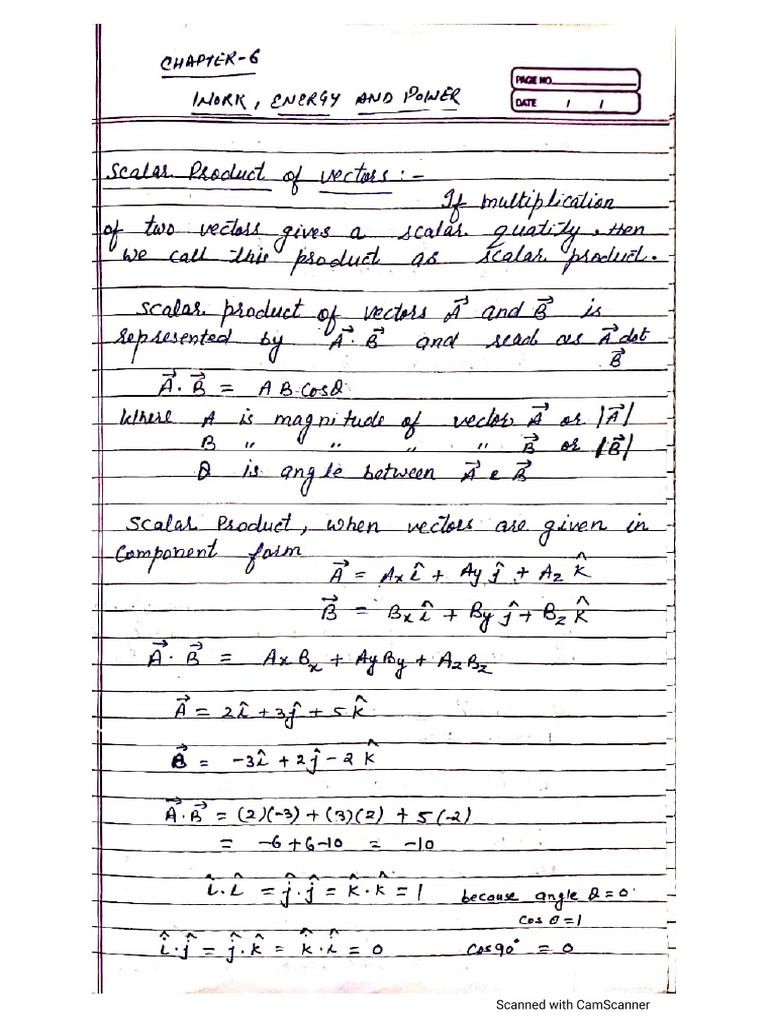 CHAPTER-6
WORK, ENERGY AND POWER
PAGE NO.
DATE / /
Scalar Product of vectors :-
If multiplication
of two vectors gives a scalar quatity, then
we call this product as scalar product.
Scalar product of vectors A⃗ and B⃗ is
represented by A⃗·B⃗ and read as A⃗ dot
B⃗
A⃗·B⃗ = AB cosθ
Where A is magnitude of vector A⃗ or |A⃗|
B " " " " B⃗ or |B⃗|
θ is angle between A⃗ & B⃗
Scalar Product, when vectors are given in
Component form
A⃗ = Axî + Ayĵ + Azk̂
B⃗ = Bxî + Byĵ + Bzk̂
A⃗·B⃗ = AxBx + AyBy + AzBz
A⃗ = 2î + 3ĵ + 5k̂
B⃗ = -3î + 2ĵ - 2k̂
A⃗·B⃗ = (2)(-3) + (3)(2) + 5(-2)
= -6+6-10 = -10
î·î = ĵ·ĵ = k̂·k̂ = 1 because angle θ=0
cosθ=1
î·ĵ = ĵ·k̂ = k̂·î = 0 cos90° = 0
Scanned with CamScanner